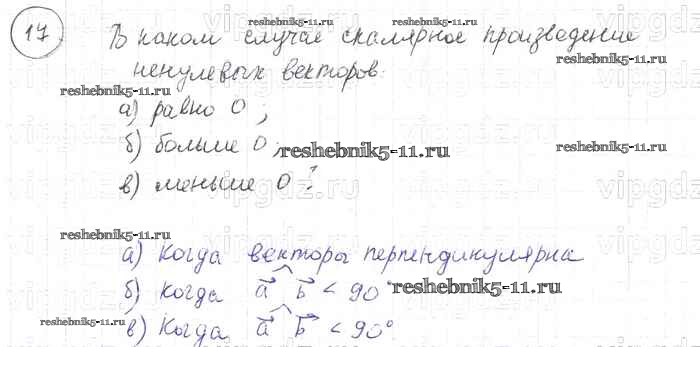 17. В каком случае скалярное произведение
ненулевых векторов:
а) равно 0;
б) больше 0;
в) меньше 0?
а) Когда векторы перпендикулярна
б) Когда a⃗ b⃗ < 90°
в) Когда a⃗ b⃗ < 90°
reshebnik5-11.ru
reshebnik5-11.ru
reshebnik5-11.ru
reshebnik5-11.ru
reshebnik5-11.ru
reshebnik5-11.ru
reshebnik5-11.ru
reshebnik5-11.ru
reshebnik5-11.ru
reshebnik5-11.ru